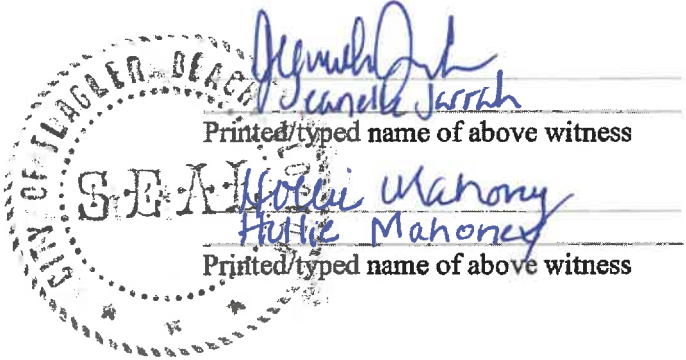 CITY OF FLAGLER BEACH
SEAL
Jarrah
Printed/typed name of above witness
Hollie Mahoney
Hollie Mahoney
Printed/typed name of above witness